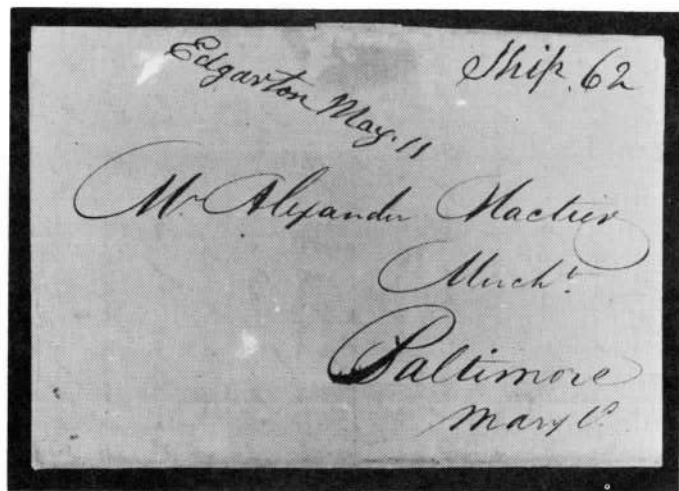 Edgarton May. 11
Ship. 62
Mr. Alexander Mactier
Mercht.
Baltimore
Maryd.